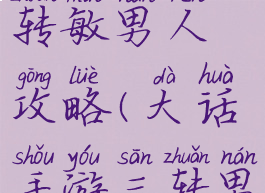 转敏男人
gōng lüè dà huà
攻略(大话
shǒu yóu sān zhuǎn nán
手游三转男